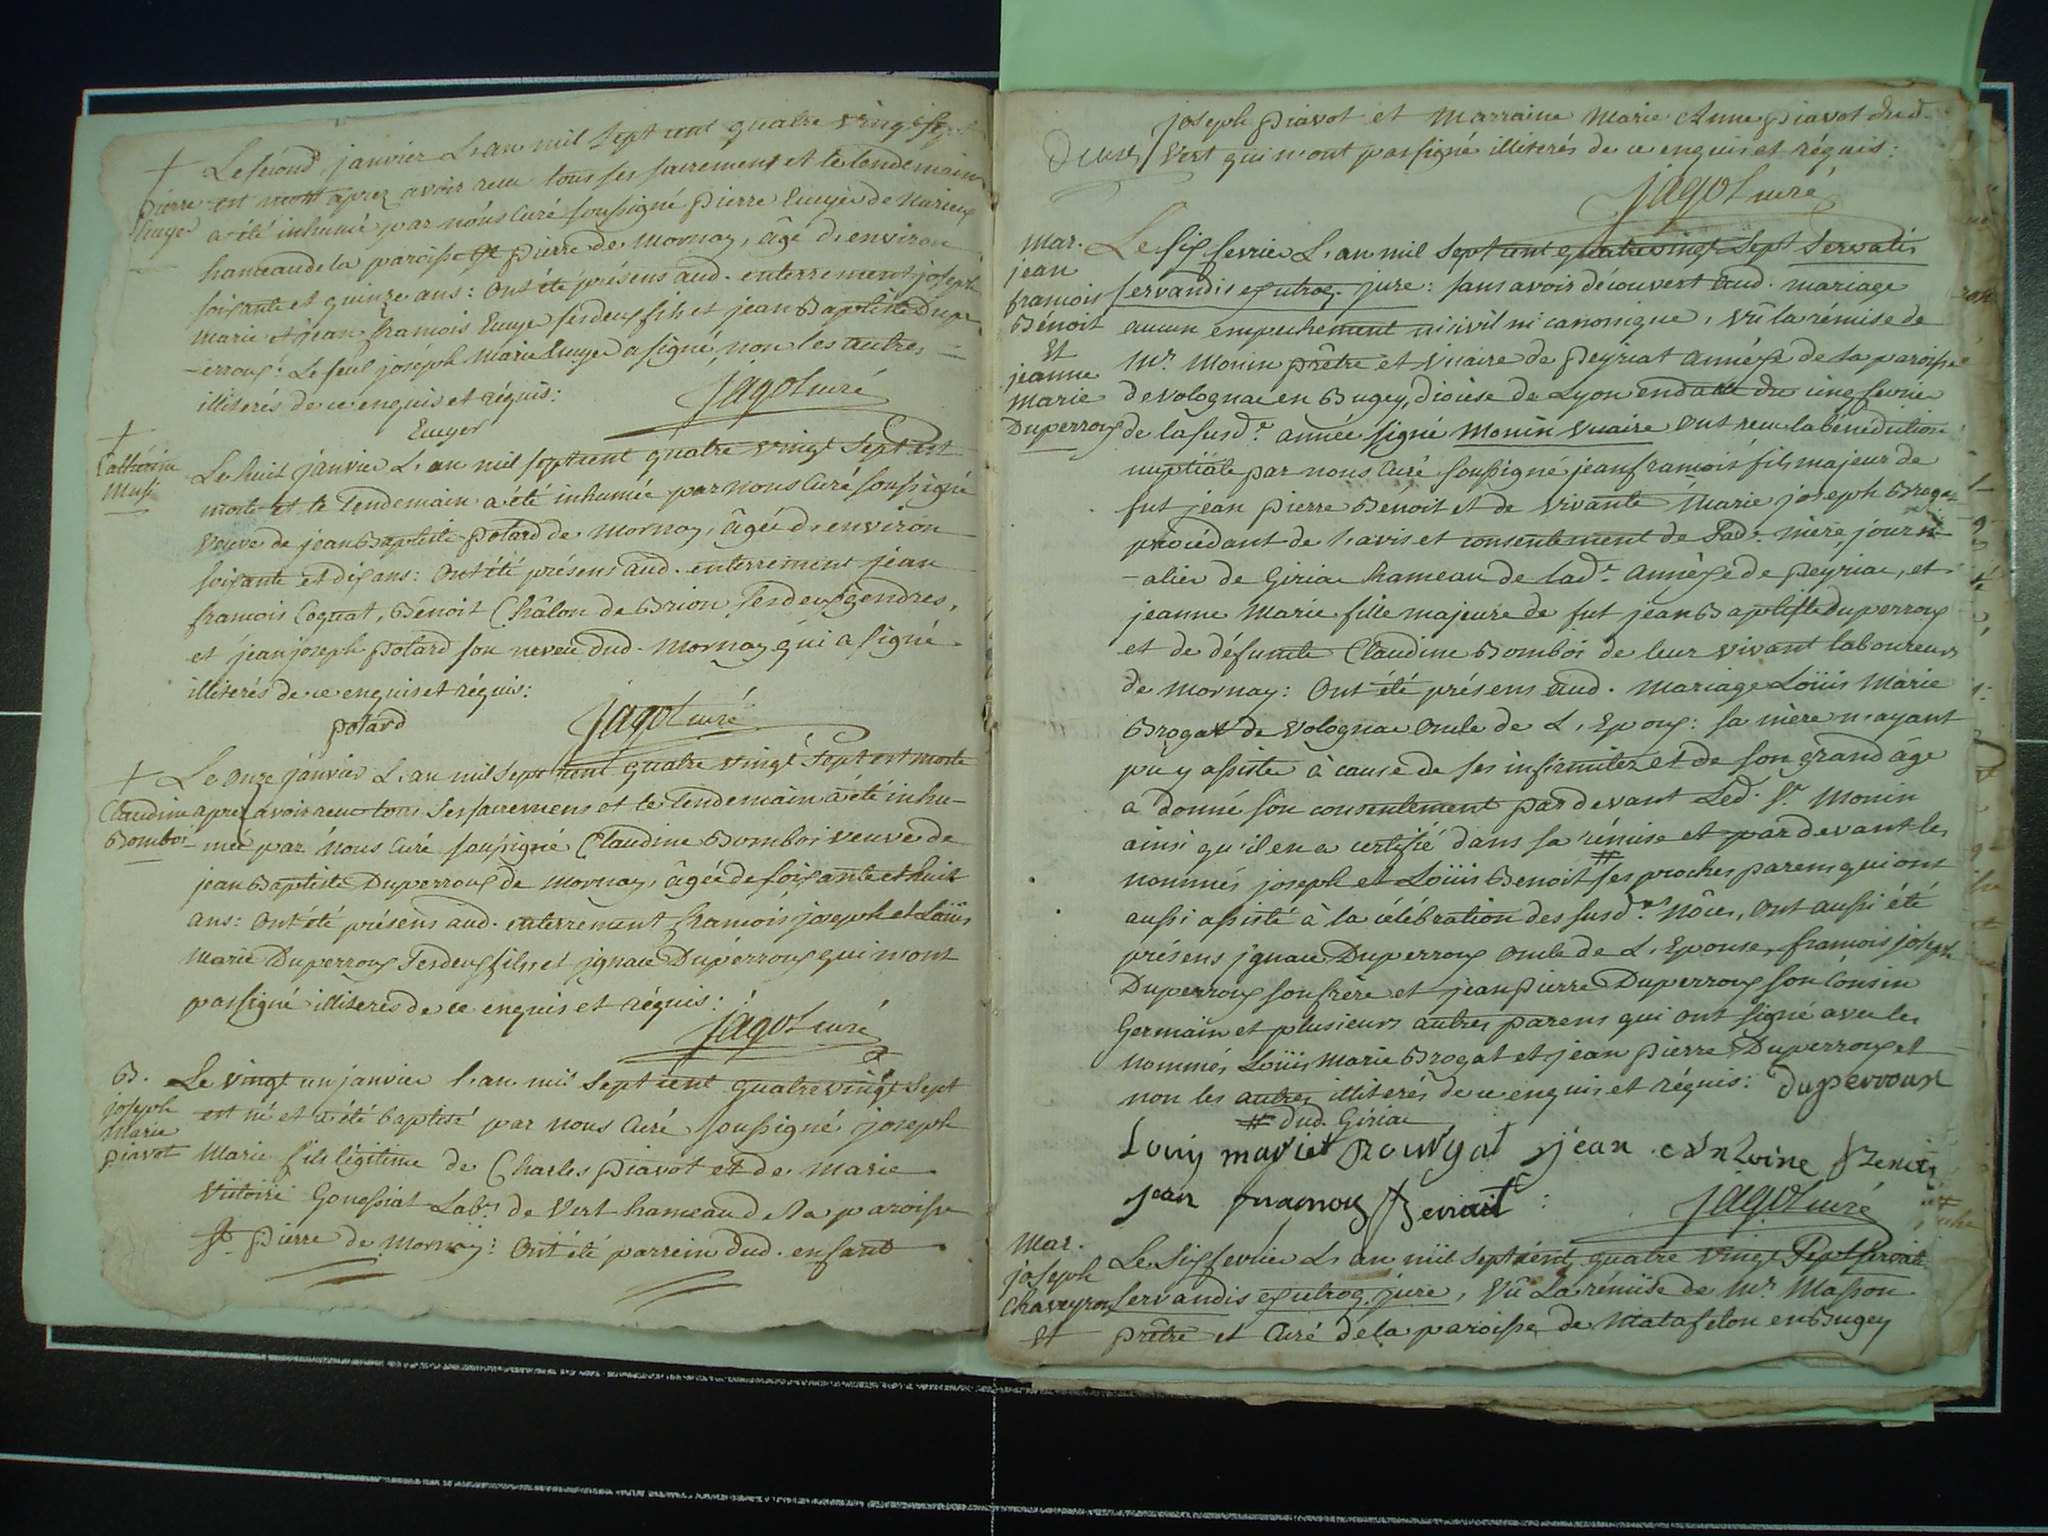 Le second janvier L'an mil sept cent quatre vingt sept
+
pierre est mort aprez avoir recu tous ses sacremens et le lendemain
Emyer a été inhumé par nous Curé soussigné pierre Emyer de
hameau de la paroisse St pierre de Mornay, âgé d'environ
soixante et quinze ans: Ont été présens aud. enterrement joseph
Marie et jean francois Emyer ses deux fils et jean Baptiste Dupe
-erroux: Le seul joséph Marie Emyer a signé non les autres
illiterés de ce enquis et réquis:
jagot curé
Emyer
+
Catherine
Musi
Le huit janvier L'an mil sept cent quatre vingt sept est
morte et le lendemain a été inhumée par nous Curé soussigné
veuve de jean Baptiste potard de Mornay, âgée d'environ
soixante et dix ans: Ont été présens aud. enterrement jean
francois Coquat, Bénoit Châlon de Brion ses deux gendres,
et jean joseph potard son neveu dud. Mornay qui a signé
illiterés de ce enquis et réquis:
potard
jagot curé
+ Le Onze janvier L'an mil sept cent quatre vingt sept est morte
Claudine apres avoir recu tous ses sacremens et le lendemain a été inhu-
Bomboi mée par nous Curé soussigné Claudine Bomboi veuve de
jean Baptiste Duperroux de Mornay, âgée de soixante et huit
ans: Ont été présens aud. enterrement francois joseph et Loüis
Marie Duperroux ses deux fils et jgnace Dupérroux qui n'ont
pas signé illiterés de ce enquis et réquis:
jagot curé
B.
joseph
Marie
piavot
Le vingt un janvier l'an mil sept cent quatre vingt sept
est né et a été baptisé par nous Curé soussigné joseph
Marie fils légitime de Charles piavot et de Marie
Victoire Gonessiat Labrs de Vert hameau de la paroisse
St pierre de Mornay: Ont été parrein dud. enfant
joseph piavot et Marraine Marie Anne piavot dud.
Vert qui n'ont pas signé illiterés de ce enquis et réquis:
jagot curé
Mar.
jean
francois
Bénoit
Et
jeanne
Marie
Duperroux
Le six fevrier L'an mil sept cent quatre vingt sept servatis
servandis ex utroq. jure: sans avoir découvert aud. mariage
aucun empechement ni civil ni canonique, Vû la rémise de
Mr Monin prêtre et Vicaire de peyriat annéxe de la paroisse
de volognac en Bugey, diocèse de Lyon en datte du cinq fevrier
de la susde année signé Monin Vicaire Ont recu la bénédiction
nuptiale par nous Curé soussigné jean francois fils majeur de
fut jean pierre Bénoit et de vivante Marie joseph Brogat
procédant de l'avis et consentement de lade mère, journ
-alier de Giriac hameau de lade annéxe de peyriac, et
jeanne Marie fille majeure de fut jean Baptiste Duperroux
et de défunte Claudine Bomboi de leur vivant laboureurs
de Mornay: Ont été présens aud. Mariage Loüis Marie
Brogat de Volognac oncle de L'Epoux: sa mère n'ayant
pu y assister à cause de ses infirmitez et de son grand âge
a donné son consentement pardevant Led. Sr Monin
ainsi qu'il en a certifié dans sa rémise et pardevant les
nommés joseph et Loüis Benoit # ses proches parens qui ont
aussi assisté à la célébration des susdes Nôces, Ont aussi été
présens jgnace Duperroux oncle de L'Epouse, francois joseph
Duperroux son frère et jean pierre Duperroux son Cousin
Germain et plusieurs autres parens qui ont signé avec les
nommés Loüis Marie Brogat et jean pierre Duperroux et
non les autres illiterés de ce enquis et réquis: Duperroux
# dud. Giriac
Louis mariet Rouvgat jean Antoine Benoit
jean francois Benoit:
jagot curé
Mar.
joseph
Chaveyron
Et
Le six fevrier L'an mil sept cent quatre vingt sept servatis
servandis ex utroq. jure, Vû La rémise de Mr Masson
prêtre et Curé de la paroisse de Matafelon en Bugey